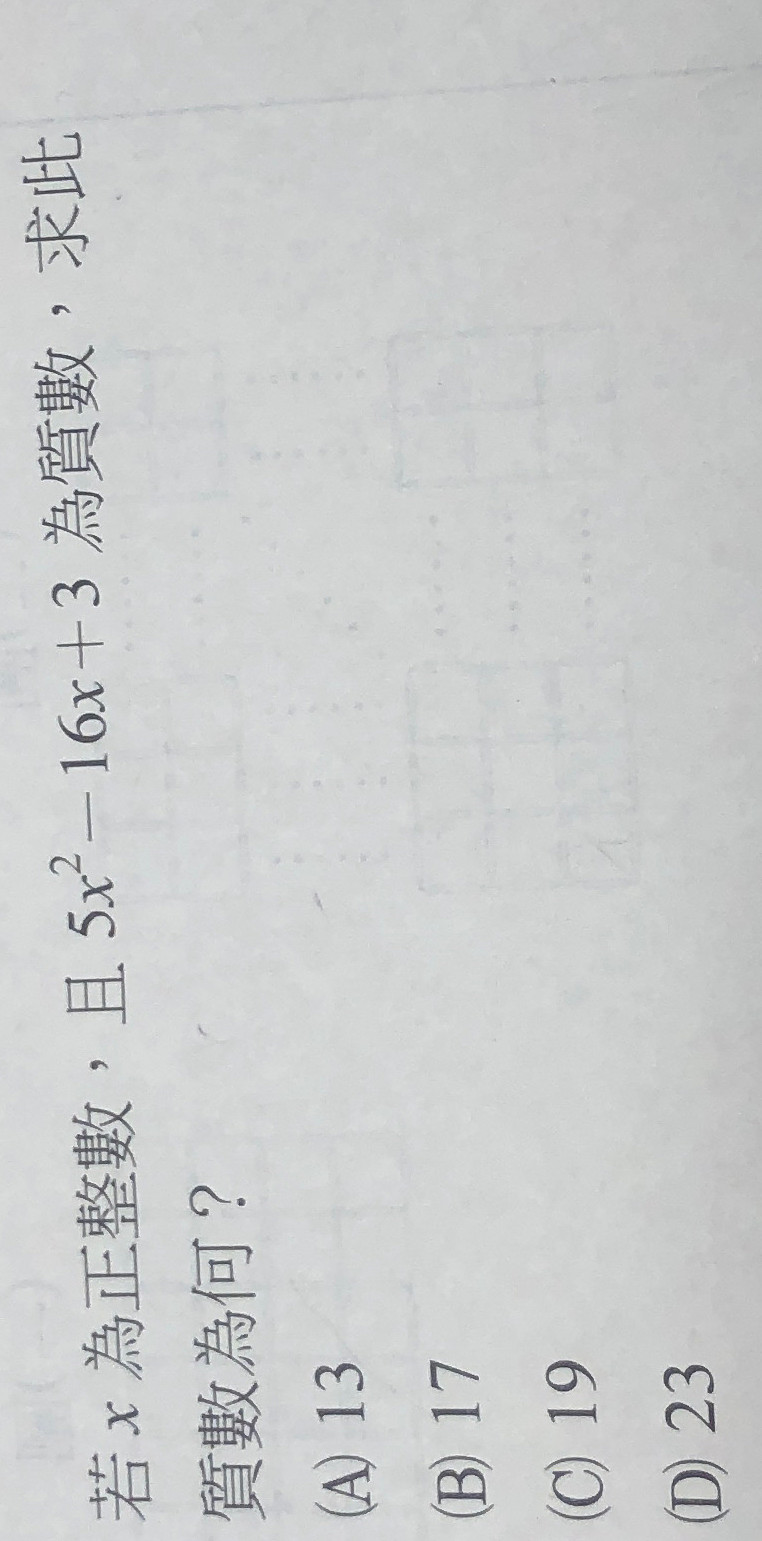 若 x 為正整數，且 5x²－16x＋3 為質數，求此
質數為何？
(A) 13
(B) 17
(C) 19
(D) 23